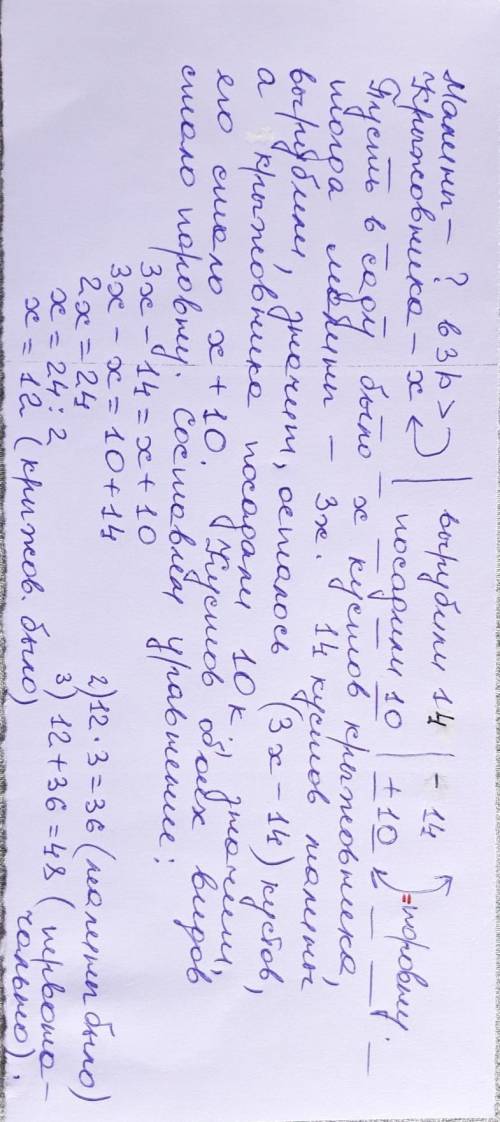 Малины – ? в 3 р > | вырубили 14 | – 14
Крыжовника – х | посадили 10 | + 10 = поровну.
Пусть в саду было х кустов крыжовника,
тогда малины – 3х. 14 кустов малины
вырубили, значит, осталось (3х – 14) кустов,
а крыжовника посадили 10 к., значит,
его стало х + 10. Кустов обоих видов
стало поровну. Составляем уравнение:
3х – 14 = х + 10
3х – х = 10 + 14
2х = 24
х = 24 : 2
х = 12 (крыжов. было)
2) 12 · 3 = 36 (малины было)
3) 12 + 36 = 48 (первона-
чально).